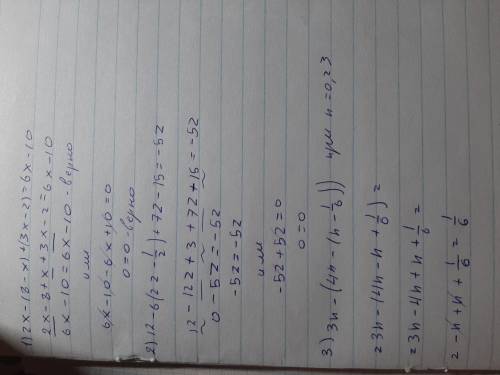 1) 2x-(8-x)+(3x-2)=6x-10
2x-8+x+3x-2=6x-10
6x-10=6x-10-верно
или
6x-10-6x+10=0
0=0-верно
2) 12-6(2z-1/2)+7z-15=-5z
12-12z+3+7z+15=-5z
0-5z=-5z
-5z=-5z
или
-5z+5z=0
0=0
3) 3n-(4n-(n-1/6)) при n=0,23
=3n-(4n-n+1/6)=
=3n-4n+n+1/6=
=-n+n+1/6=1/6